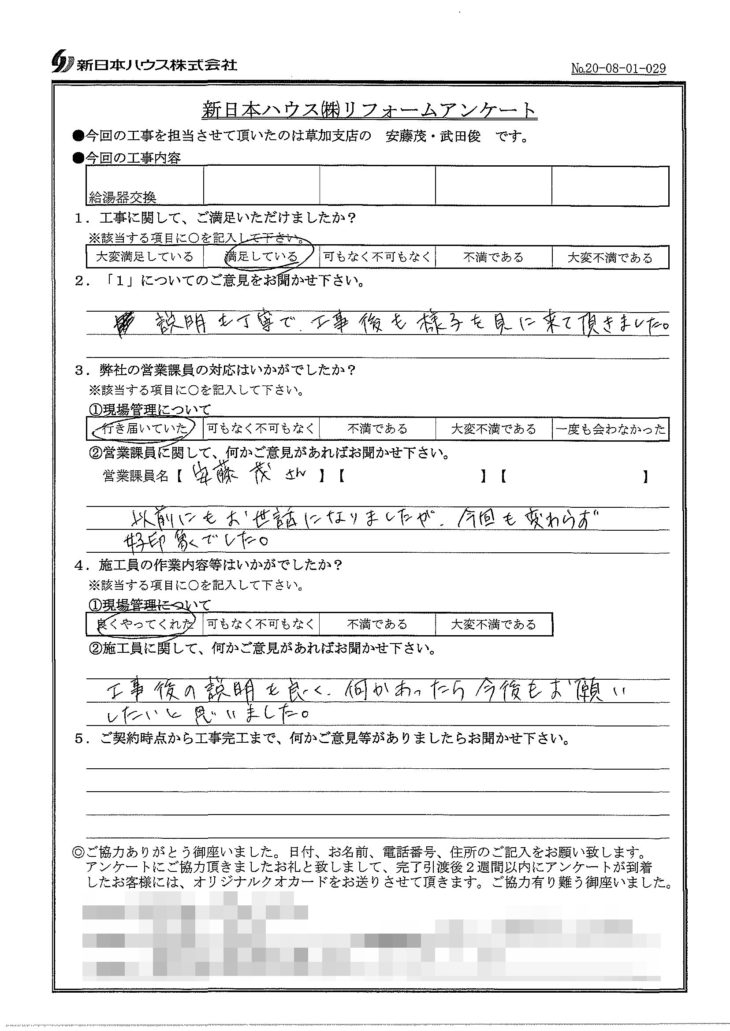 新日本ハウス株式会社
№20-08-01-029
新日本ハウス㈱リフォームアンケート
●今回の工事を担当させて頂いたのは草加支店の 安藤茂・武田俊 です。
●今回の工事内容
給湯器交換
1．工事に関して、ご満足いただけましたか？
※該当する項目に○を記入して下さい。
大変満足している 満足している 可もなく不可もなく 不満である 大変不満である
2．「1」についてのご意見をお聞かせ下さい。
説明も丁寧で、工事後も様子を見に来て頂きました。
3．弊社の営業課員の対応はいかがでしたか？
※該当する項目に○を記入して下さい。
①現場管理について
行き届いていた 可もなく不可もなく 不満である 大変不満である 一度も会わなかった
②営業課員に関して、何かご意見があればお聞かせ下さい。
営業課員名【 安藤 茂 さん 】【 】【 】
以前にもお世話になりましたが、今回も変わらず
好印象でした。
4．施工員の作業内容等はいかがでしたか？
※該当する項目に○を記入して下さい。
①現場管理について
良くやってくれた 可もなく不可もなく 不満である 大変不満である
②施工員に関して、何かご意見があればお聞かせ下さい。
工事後の説明も良く、何かあったら今後もお願い
したいと思いました。
5．ご契約時点から工事完工まで、何かご意見等がありましたらお聞かせ下さい。
◎ご協力ありがとう御座いました。日付、お名前、電話番号、住所のご記入をお願い致します。
アンケートにご協力頂きましたお礼と致しまして、完了引渡後２週間以内にアンケートが到着
したお客様には、オリジナルクオカードをお送りさせて頂きます。ご協力有り難う御座いました。